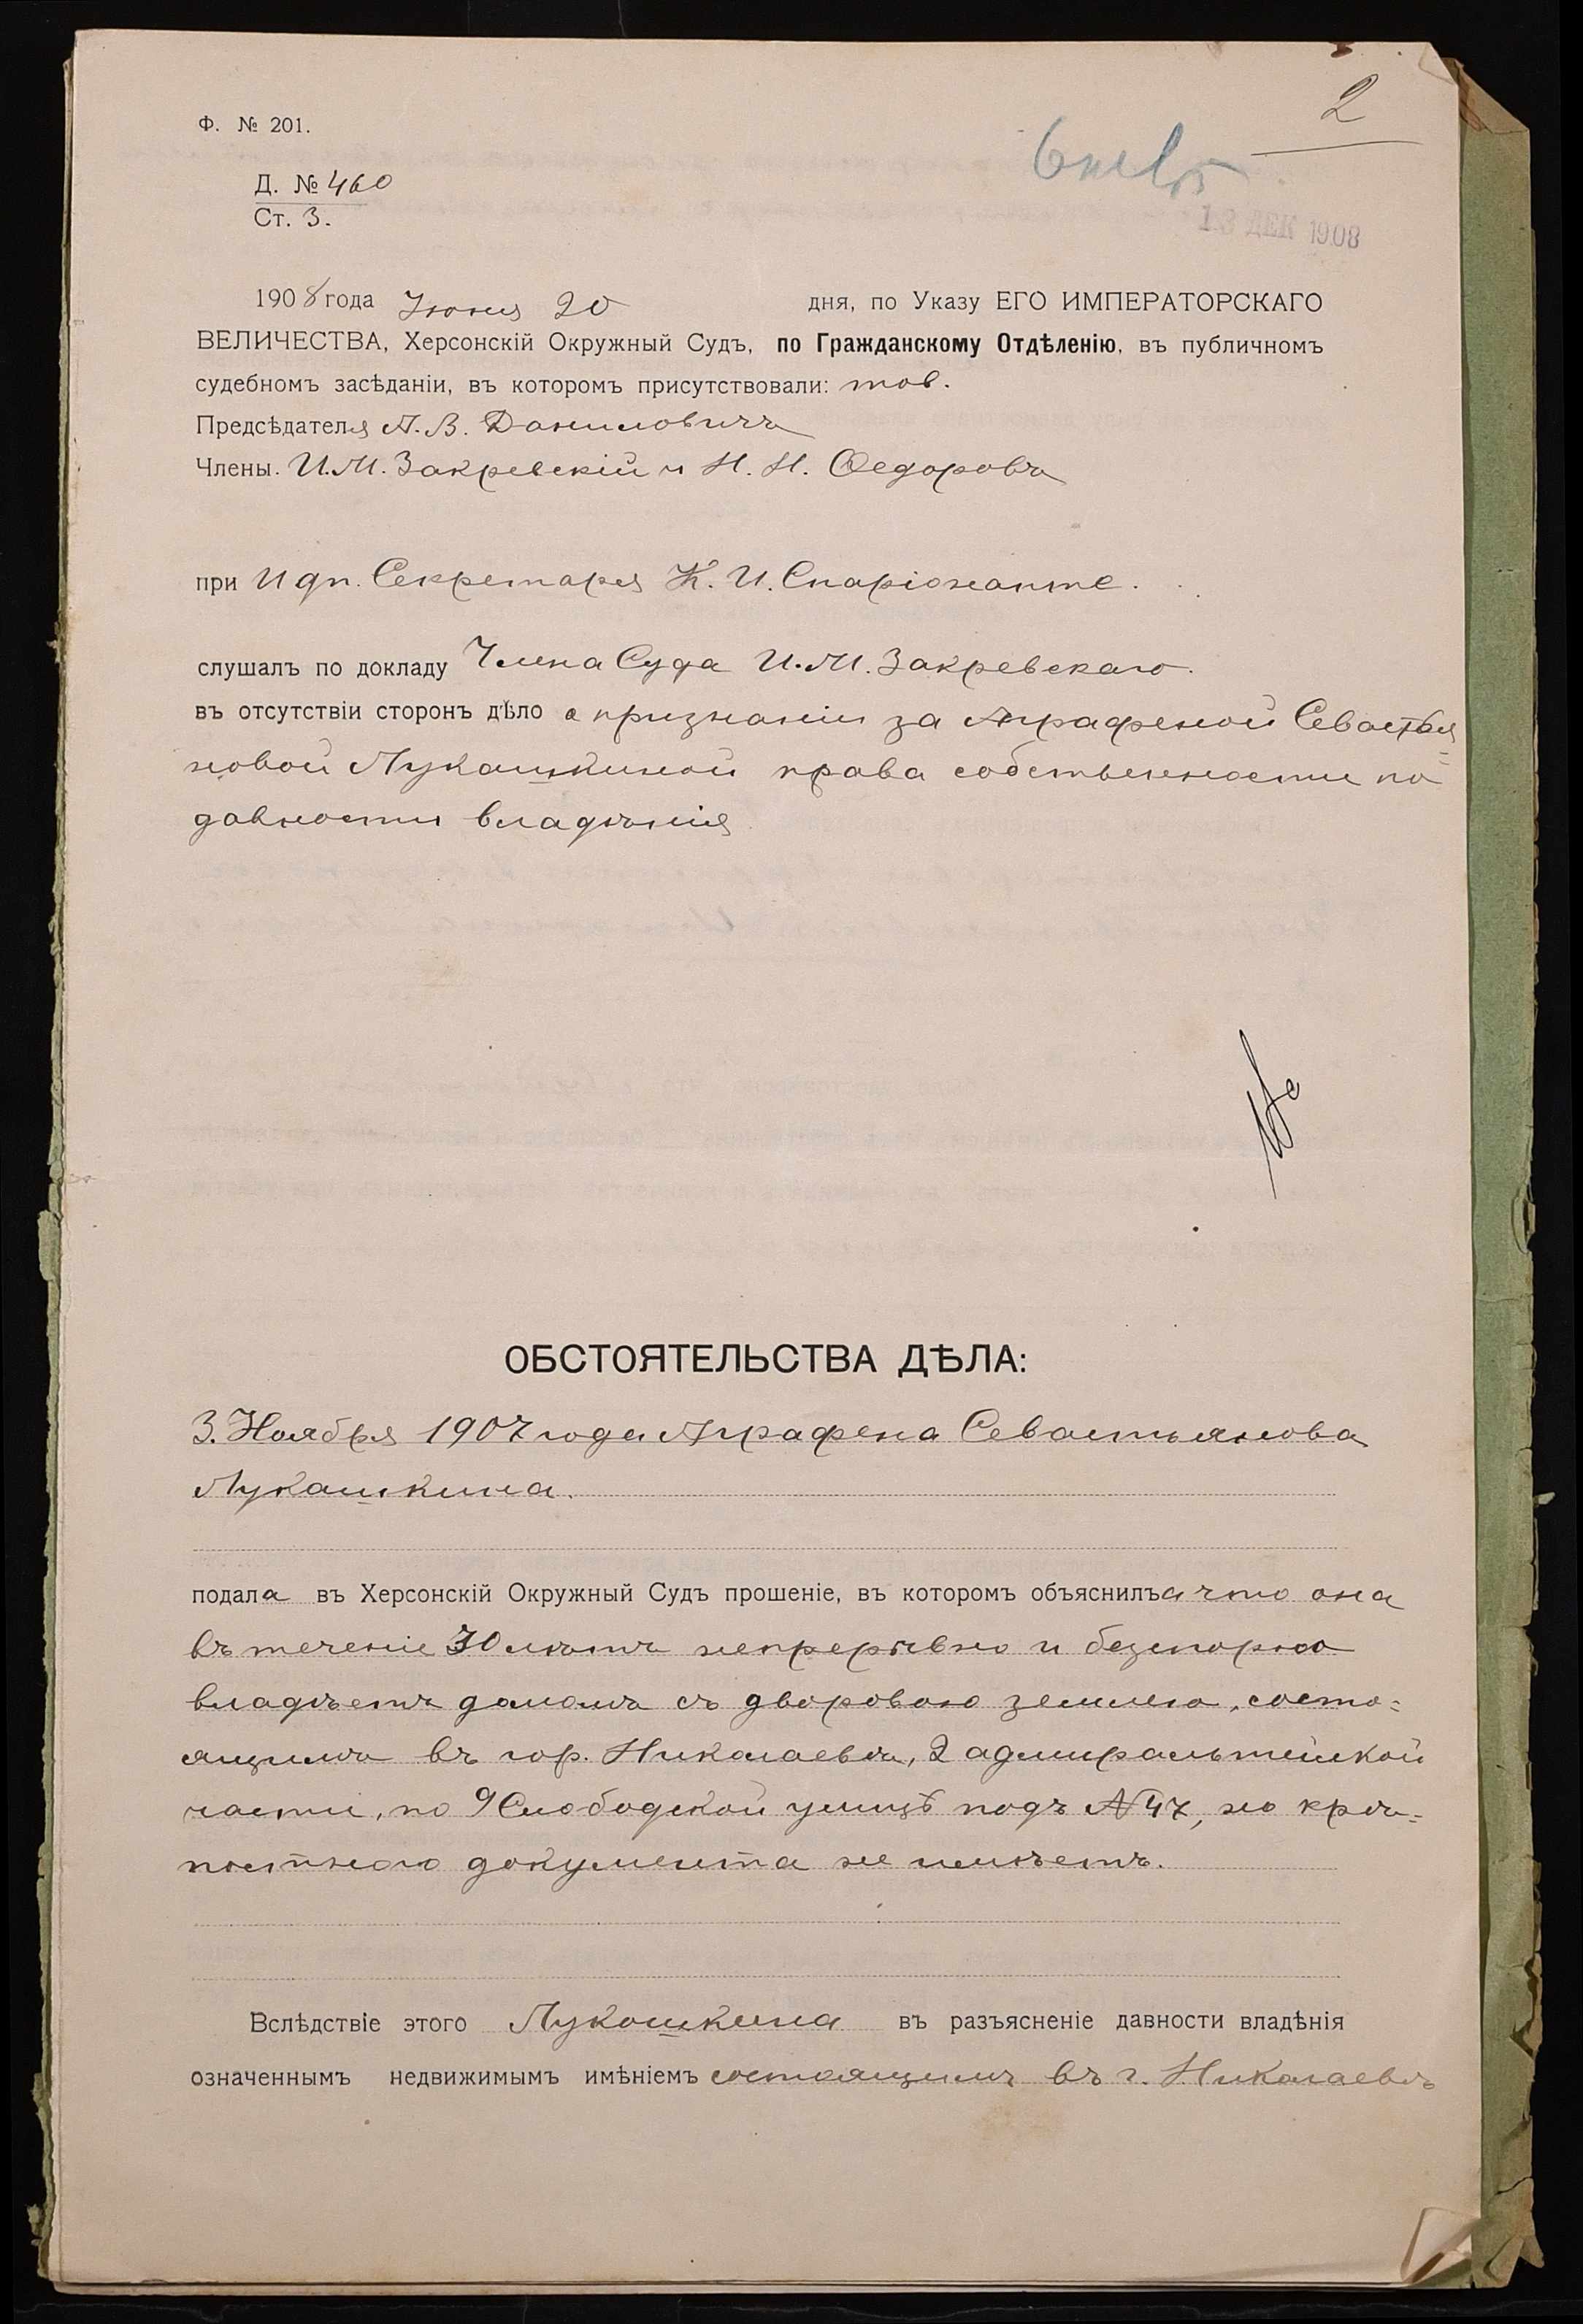 2
Ф. № 201.
Д. № 460
Ст. 3.
13 ДЕК 1908
1908 года Іюня 20 дня, по Указу ЕГО ИМПЕРАТОРСКАГО
ВЕЛИЧЕСТВА, Херсонскій Окружный Судъ, по Гражданскому Отдѣленію, въ публичномъ
судебномъ засѣданіи, въ которомъ присутствовали: тов.
Предсѣдателя А. В. Даниловичъ
Члены. И. М. Закревскій и Н. Н. Ѳедоровъ
при И дп. Секретаря К. И.
слушалъ по докладу Члена Суда И. М. Закревскаго.
въ отсутствіи сторонъ дѣло о признаніи за Аграфеной Севастья=
новой Лукашкиной права собственности по
давности владѣнія
ОБСТОЯТЕЛЬСТВА ДѢЛА:
3. Ноября 1907 года Аграфена Севастьянова
Лукашкина.
подала въ Херсонскій Окружный Судъ прошеніе, въ которомъ объяснилъа что она
въ теченіе 30 лѣтъ непрерывно и безспорно
владѣетъ домомъ съ дворовою землею, состо=
ящимъ въ гор. Николаевѣ, 2 адмиральтейской
части, по 9 Слободской улицѣ подъ № 47, но крѣ=
постного документа не имѣетъ.
Вслѣдствіе этого Лукашкина въ разъясненіе давности владѣнія
означеннымъ недвижимымъ имѣніемъ состоящимъ въ г. Николаевѣ